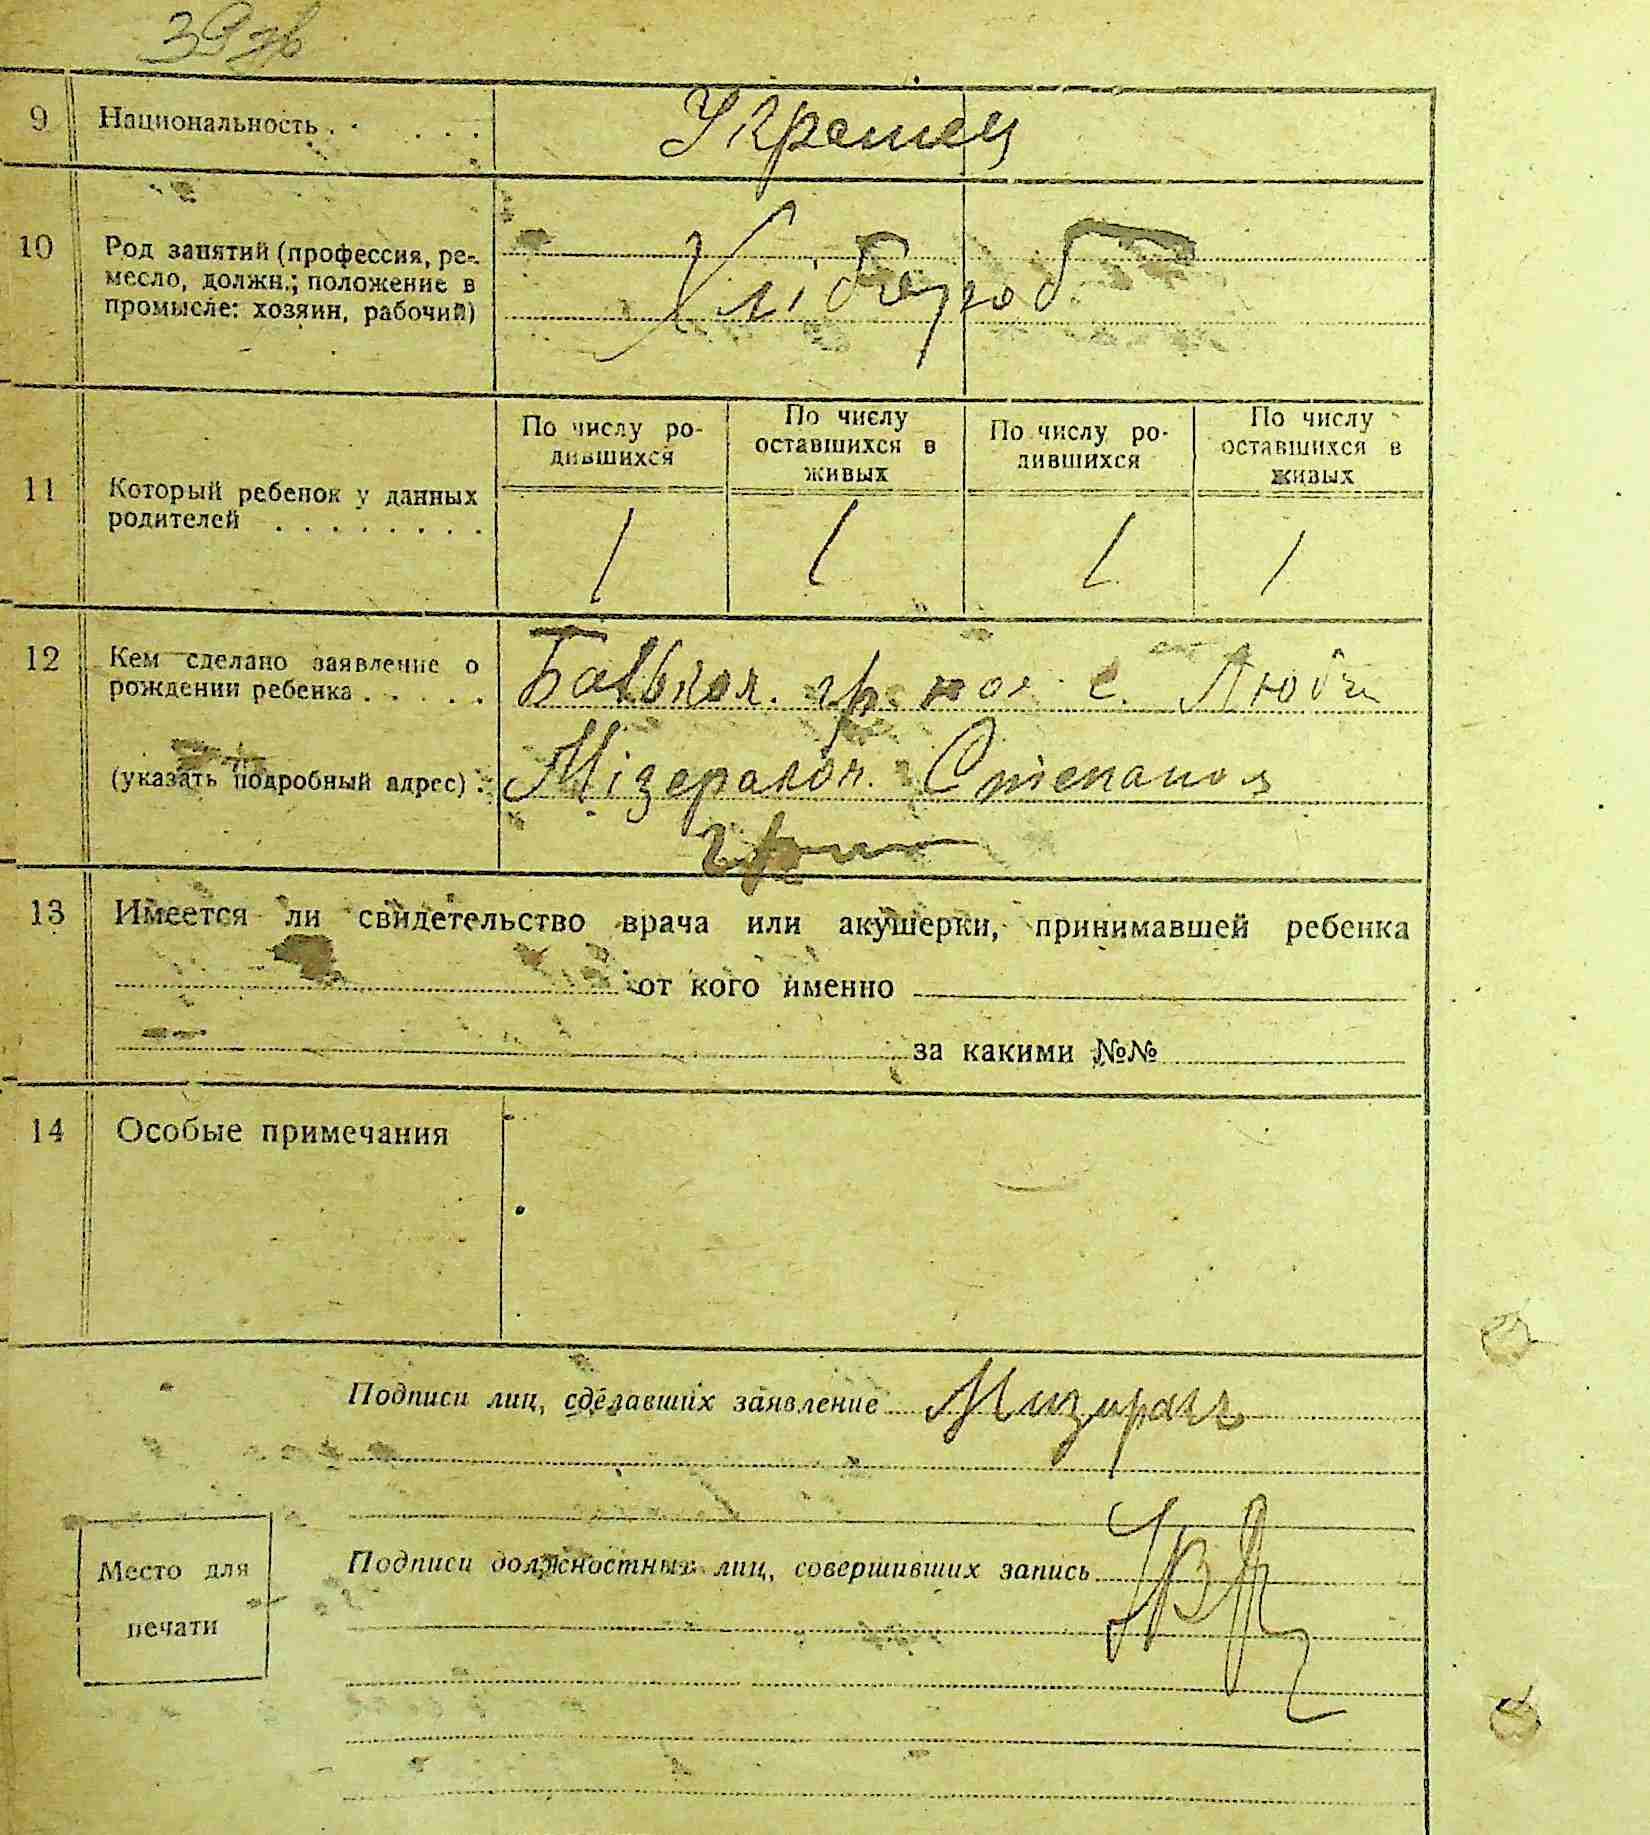 39 зв
9 Национальность . . . . . Украінец
10 Род занятий (профессия, ре-
месло, должн.; положение в
промысле: хозяин, рабочий)
Хлібороб
По числу ро-
дившихся
По числу
оставшихся в
живых
По числу ро-
дившихся
По числу
оставшихся в
живых
11 Который ребенок у данных
родителей . . . . . . . .
1 1 1 1
12 Кем сделано заявление о
рождении ребенка . . . . .
Батьком гр. с. Люб
(указать подробный адрес) . Мізераком Степаном
13 Имеется ли свидетельство врача или акушерки, принимавшей ребенка
от кого именно
за какими №№
14 Особые примечания
Подписи лиц, сделавших заявление Мизирак
Подписи должностных лиц, совершивших запись
Место для
печати